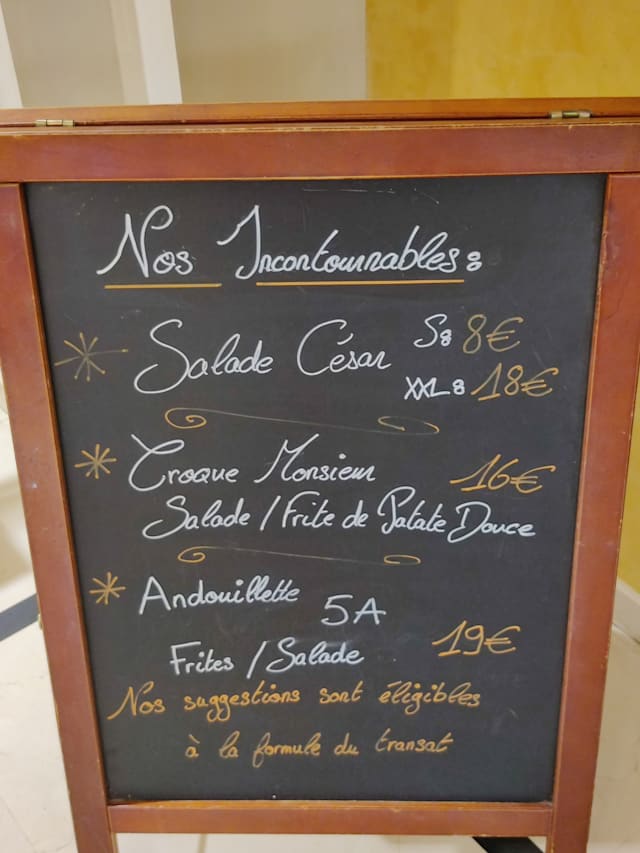 Nos Incontournables:
Salade César S: 8€
XXL: 18€
Croque Monsieur 16€
Salade / Frite de Patate Douce
Andouillette 5A
Frites / Salade 19€
Nos suggestions sont éligibles
à la formule du transat